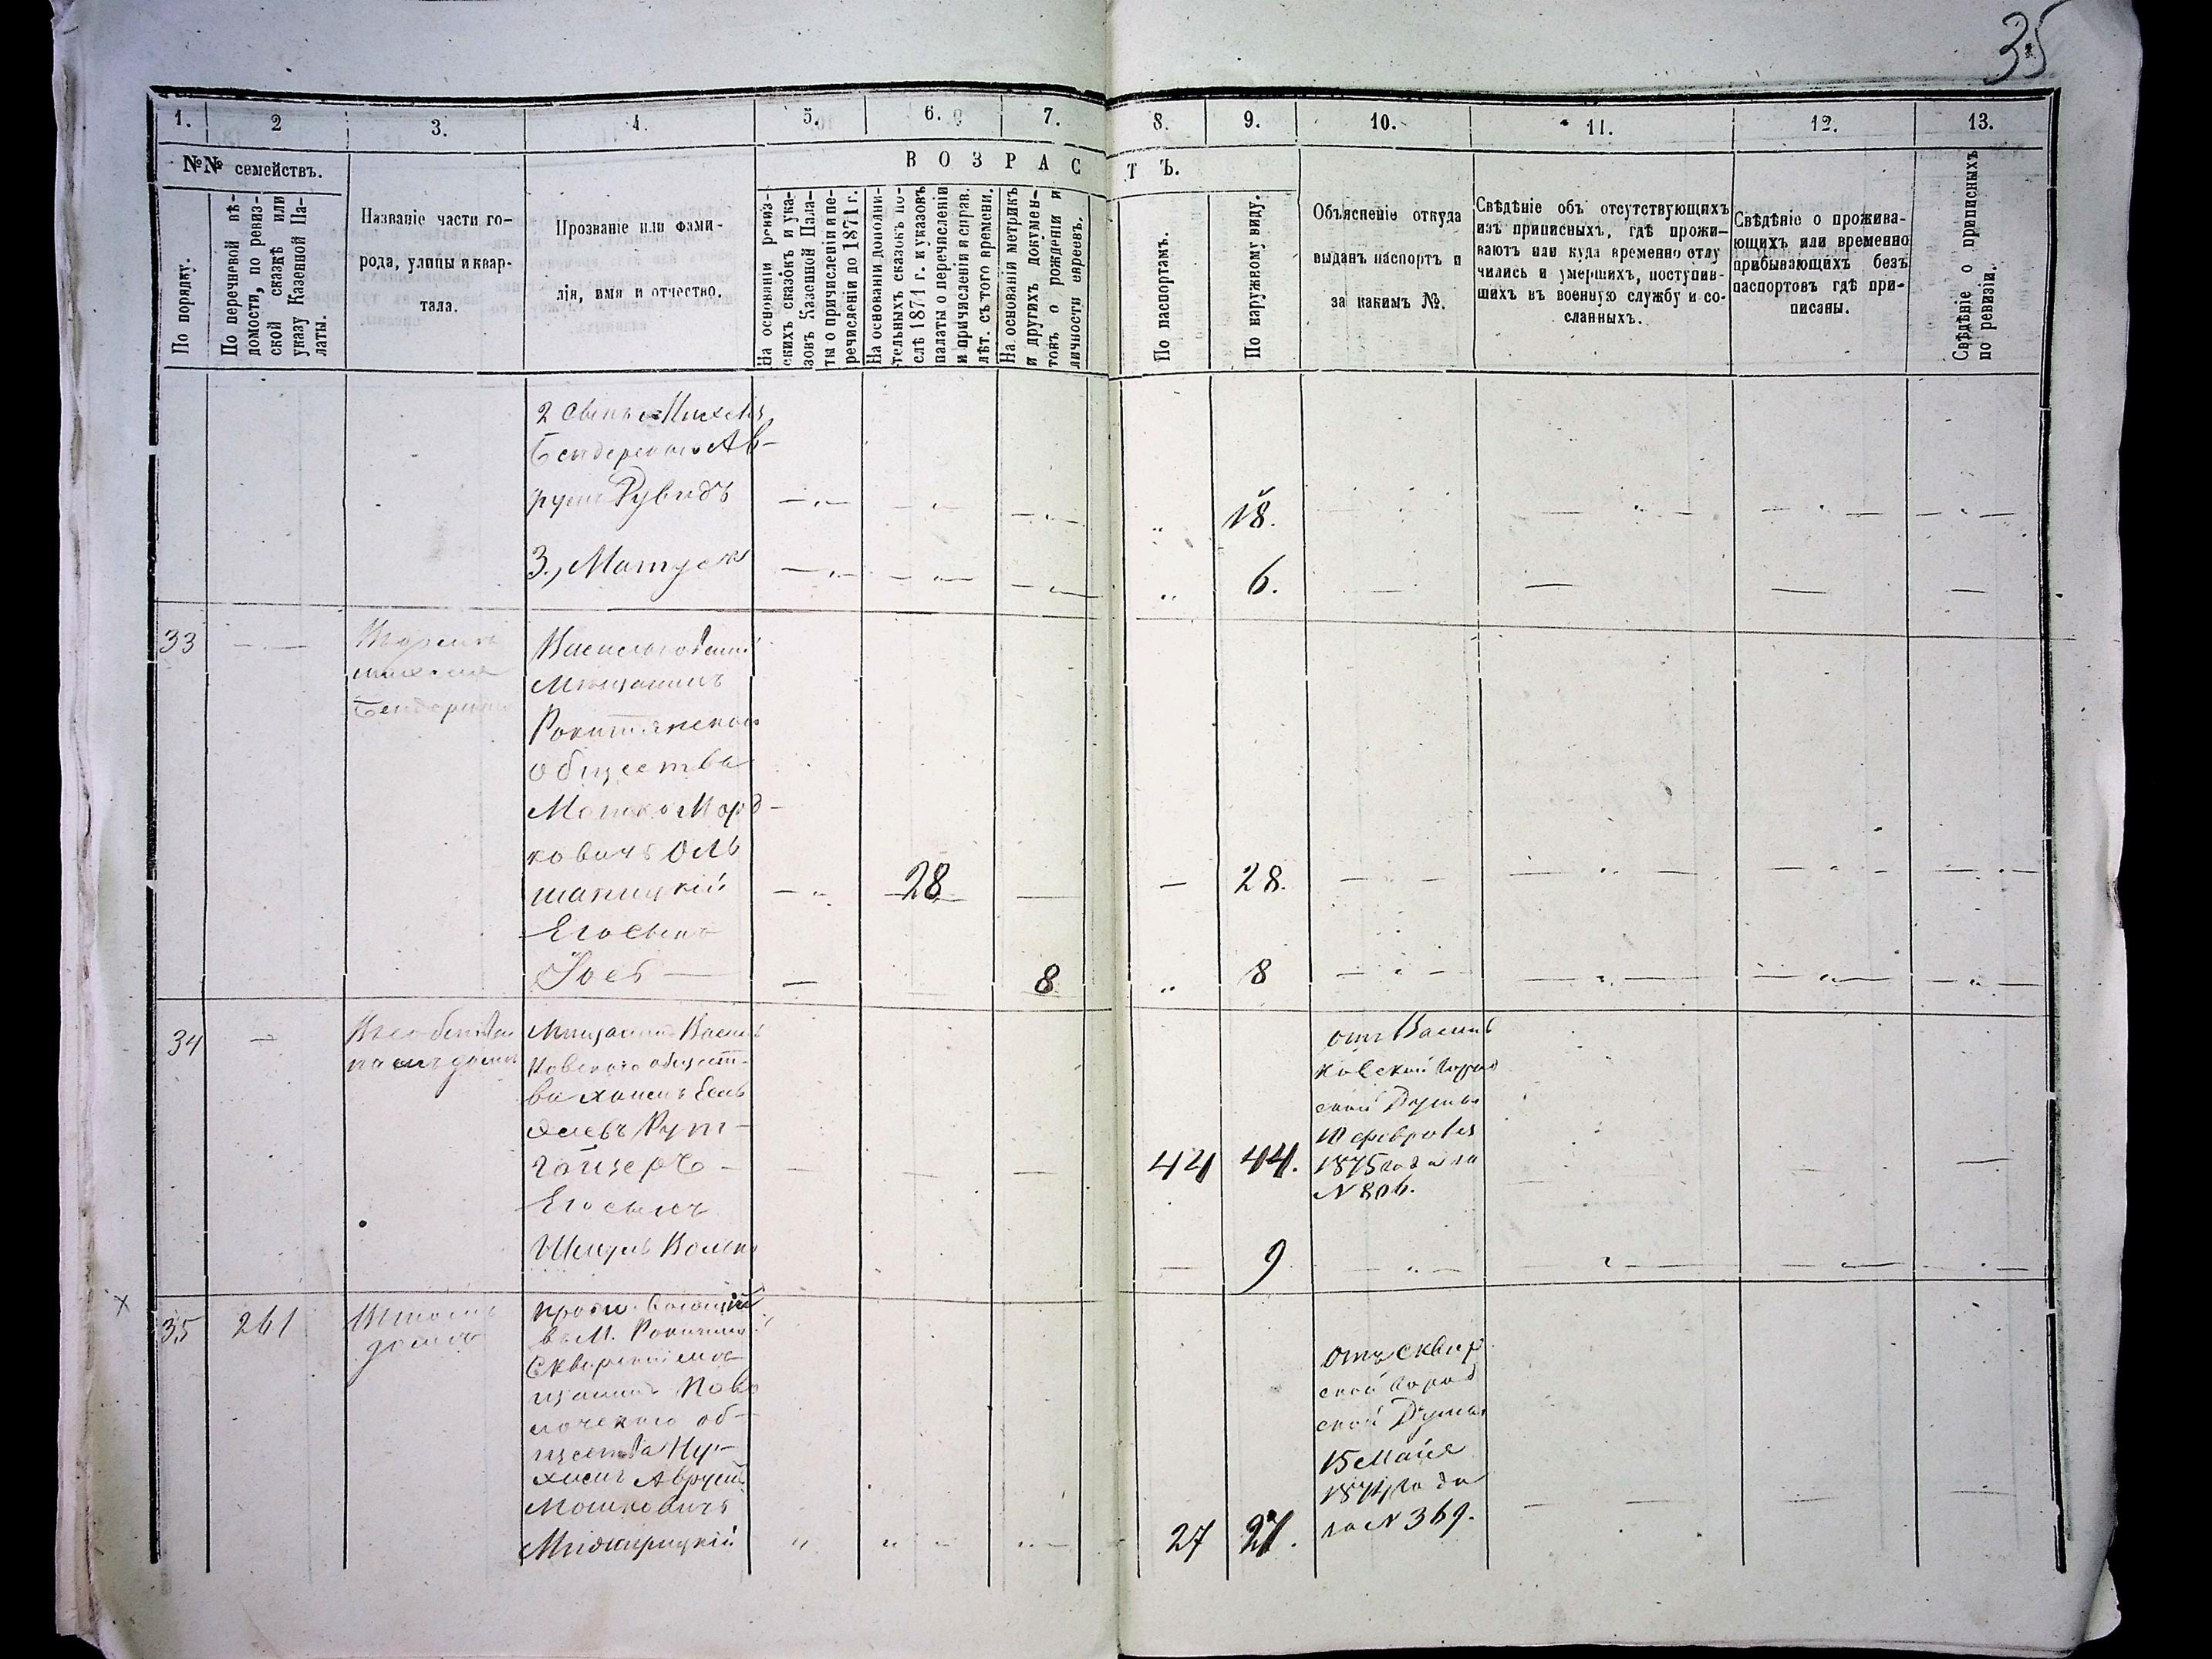 35
1. 2 3. 4. 5. 6. 7. 8. 9. 10. 11. 12. 13.
№№ семействъ.
ВОЗРАСТЪ.
По порядку.
По перечневой вѣ-
домости, по ревиз-
ской сказкѣ или
указу Казенной Па-
латы.
Названіе части го-
рода, улицы и квар-
тала.
Прозваніе или фами-
лія, имя и отчество.
На основаніи ревиз-
скихъ сказокъ и ука-
зовъ Казенной Пала-
ты о причисленіи и пе-
речисленіи до 1871 г.
На основаніи дополни-
тельныхъ сказокъ по-
слѣ 1871 г. и указовъ
палаты о перечисленіи
и причисленіи и справ.
лѣт. съ того времени.
На основаніи метрикъ
и другихъ докумен-
товъ о рожденіи и
личности евреевъ.
По паспортамъ.
По наружному виду.
Объясненіе откуда
выданъ паспортъ и
за какимъ №.
Свѣдѣніе объ отсутствующихъ
изъ приписныхъ, гдѣ прожи-
ваютъ или куда временно отлу
чились и умершихъ, поступив-
шихъ въ военную службу и со-
сланныхъ.
Свѣдѣніе о прожива-
ющихъ или временно
прибывающихъ безъ
паспортовъ гдѣ при-
писаны.
Свѣдѣніе о приписныхъ
по ревизіи.
2 Сынъ
Бендерскаго Ав-
Рувидъ
18.
3., Матус
6.
33
Бендерскаго
Мѣщанинъ
общества
Мошко Морд-
ковичъ Оль
шаницкій
28
28.
Его сынъ
Іось
8
8
34
домѣ
Мѣщанинъ Василь
ковскаго общест-
ва
Рут-
гайзеръ
44 44.
отъ Василь
ковской Город
ской Думы
10 февраля
1875 года за
N 806.
Его сынъ
Шмуль Волько
9
35
261
домѣ
въ М.
Сквирскій мѣ
щанинъ Пово
лочскаго об-
щества Ну-
химъ Аврумъ
Мошковичъ
Межирицкій
27 27.
отъ Сквир
ской Город
ской Думы
15 Майя
1874 года
за N 369.